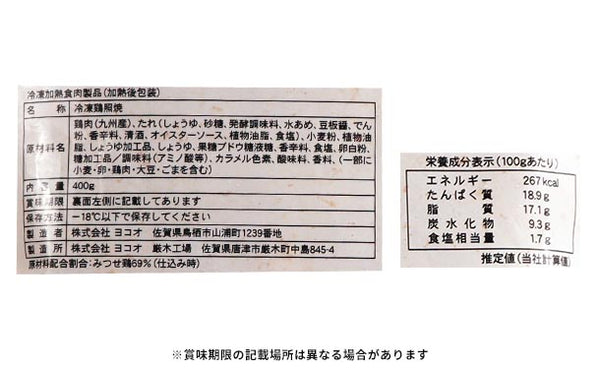 冷凍加熱食肉製品(加熱後包装)
名 称 冷凍鶏照焼
原材料名 鶏肉(九州産)、たれ(しょうゆ、砂糖、発酵調味料、水あめ、豆板醤、でん
粉、香辛料、清酒、オイスターソース、植物油脂、食塩)、小麦粉、植物油
脂、しょうゆ加工品、しょうゆ、果糖ブドウ糖液糖、香辛料、食塩、卵白粉、
糖加工品/調味料(アミノ酸等)、カラメル色素、酸味料、香料、(一部に
小麦・卵・鶏肉・大豆・ごまを含む)
内 容 量 400g
賞味期限 裏面左側に記載してあります
保存方法 -18℃以下で保存してください
製 造 者 株式会社 ヨコオ 佐賀県鳥栖市山浦町1239番地
製 造 所 株式会社 ヨコオ 厳木工場 佐賀県唐津市厳木町中島845-4
原材料配合割合:みつせ鶏69%(仕込み時)
栄養成分表示(100gあたり)
エネルギー 267kcal
たんぱく質 18.9g
脂質 17.1g
炭水化物 9.3g
食塩相当量 1.7g
推定値(当社計算値)
※賞味期限の記載場所は異なる場合があります